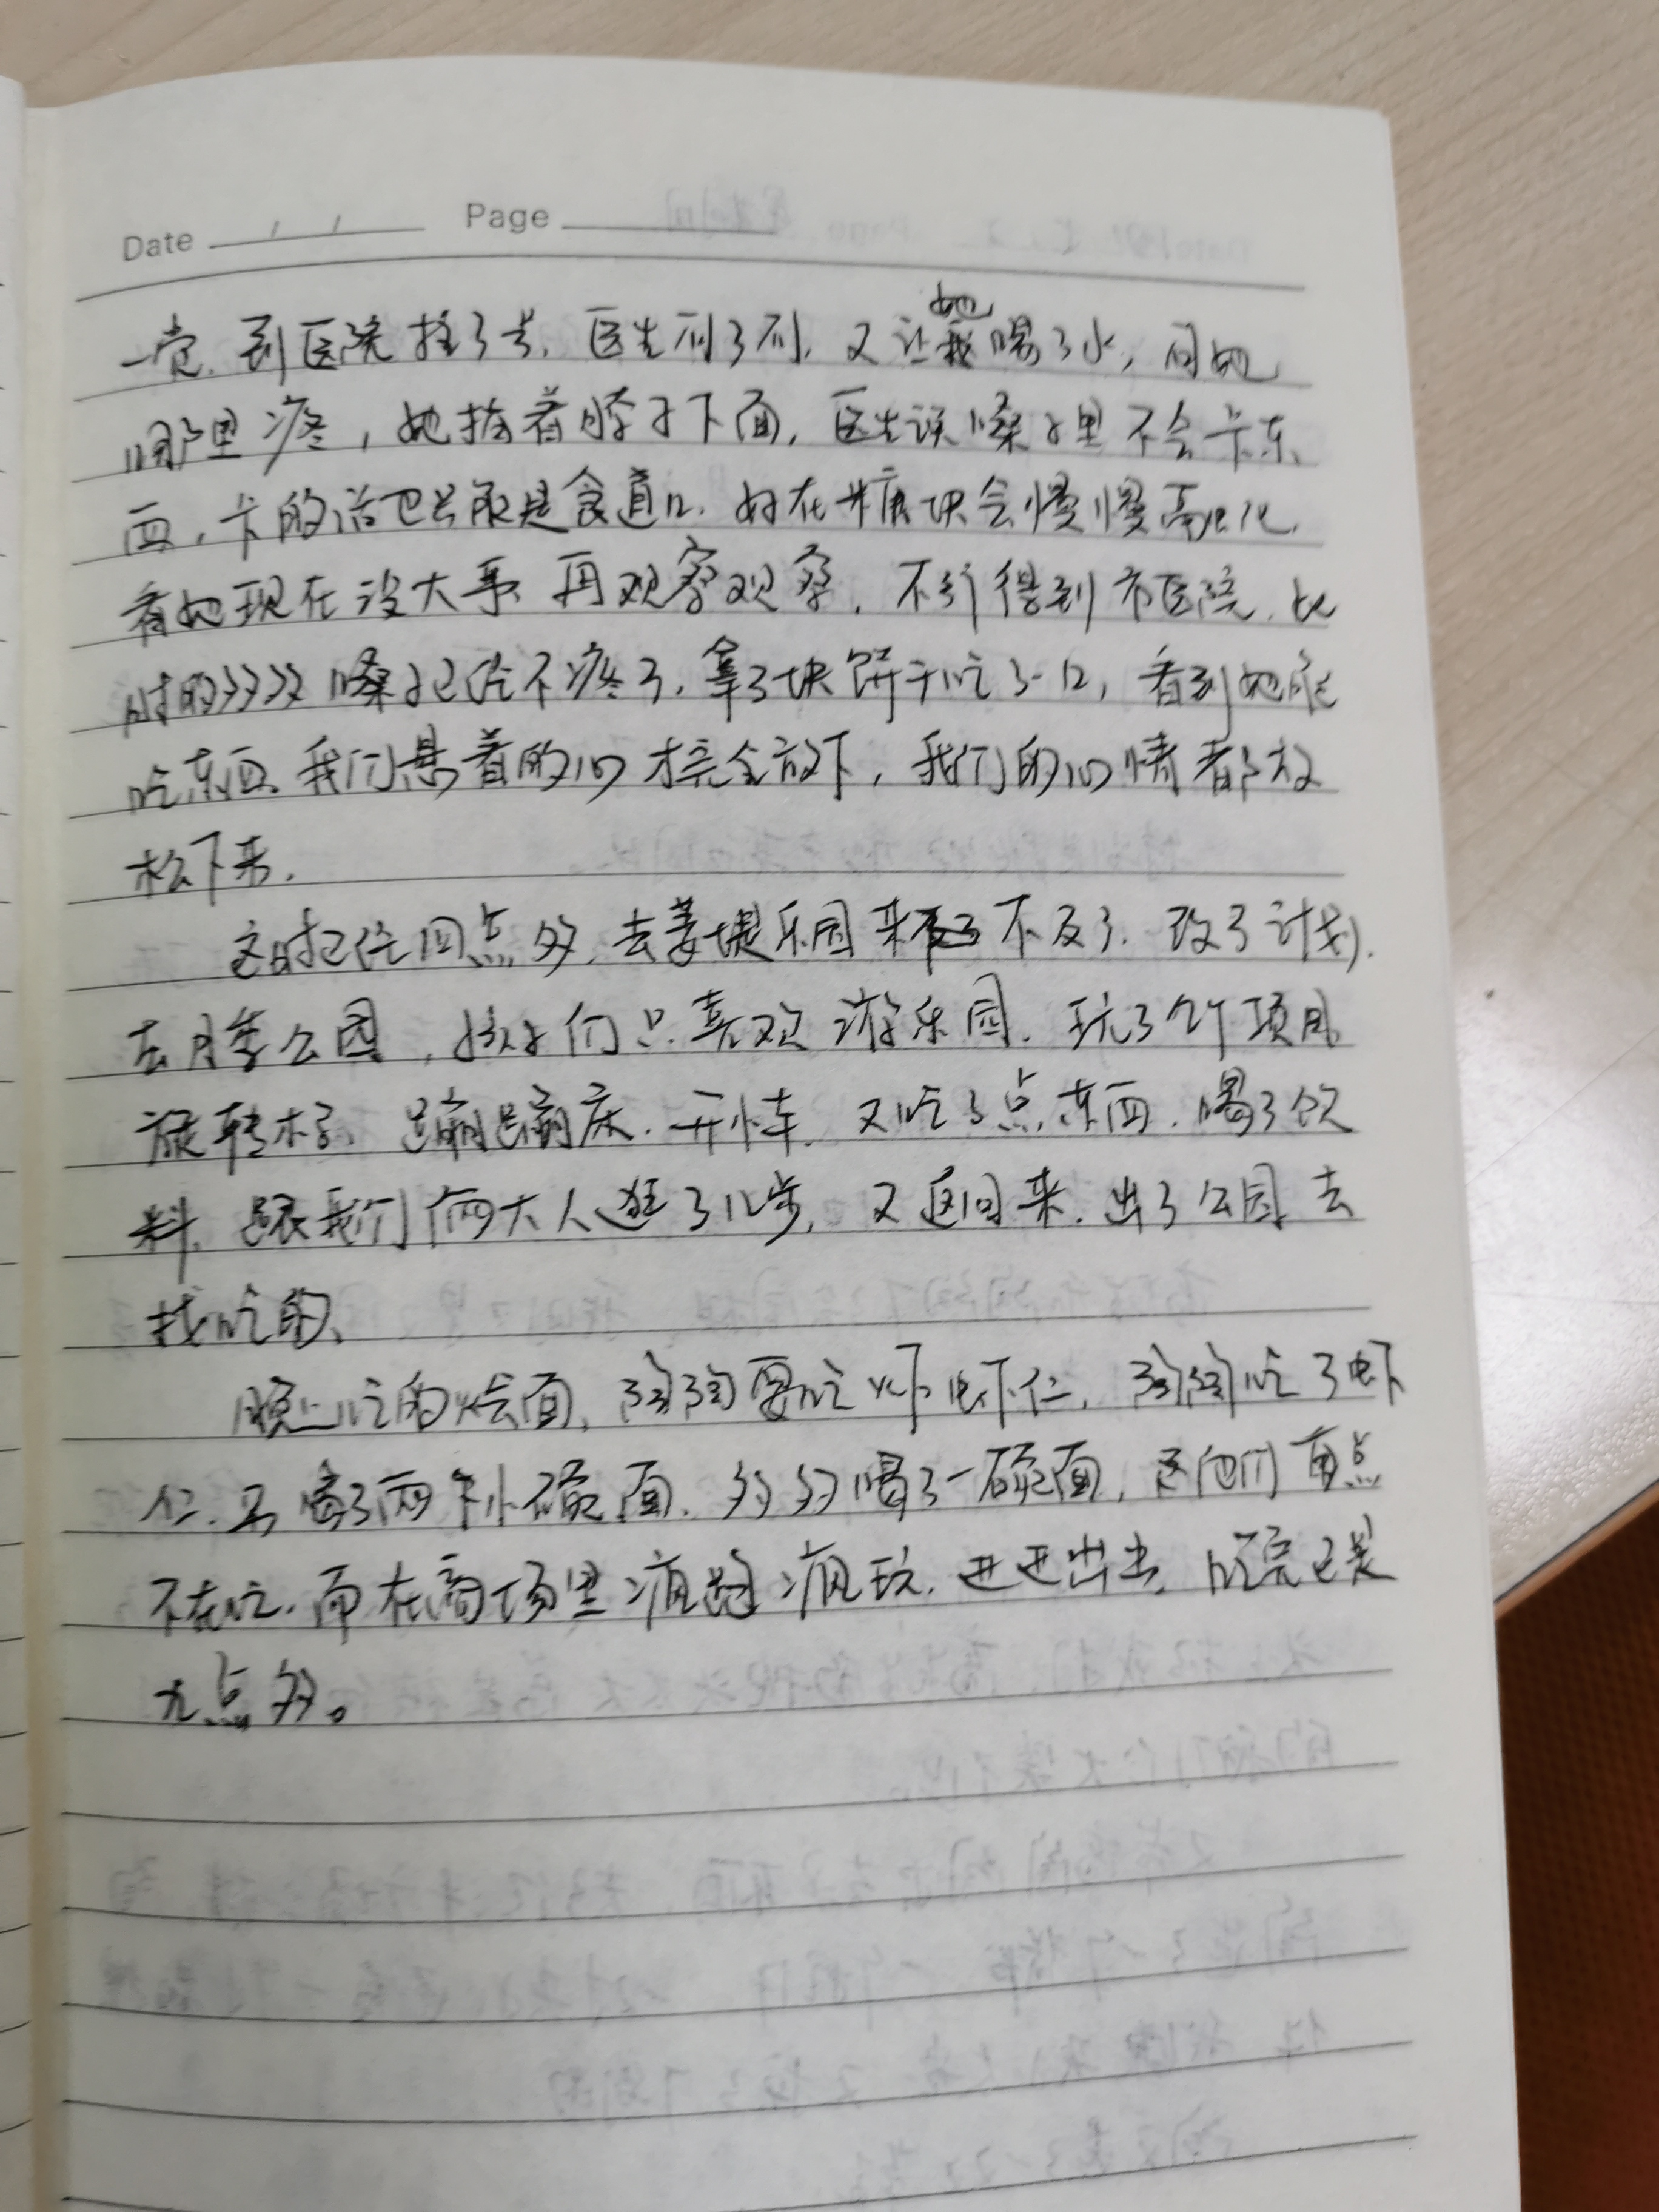 Date / / Page
一觉. 到医院挂了号. 医生看了看, 又让她喝了水, 问她
哪里疼, 她指着脖子下面, 医生说嗓子里不会卡东
西, 卡的话也只能是食道口. 好在糖块会慢慢融化,
看她现在没大事, 再观察观察, 不行得到市医院. 此
时的多多嗓子已经不疼了, 拿了块饼干吃了一口, 看到她能
吃东西, 我们悬着的心才完全放下, 我们的心情都放
松下来.
这时已经四点多, 去姜堤乐园来不及了. 改了计划.
去月季公园, 孩子们只喜欢游乐园. 玩了个项目
旋转木马, 蹦蹦床. 开小车. 又吃了点东西. 喝了饮
料, 跟我们俩大人逛了几步, 又返回来. 出了公园去
找吃的.
晚上吃的烩面, 陶陶要吃炸虾仁, 陶陶吃了虾
仁. 又喝了两小碗面. 多多喝了一碗面, 这他们有点
不在吃. 而在商场里疯跑疯玩. 进进出出, 吃完已是
九点多。